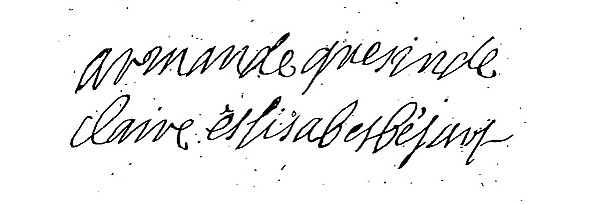 armande gresinde
claire èslisabesbéjart